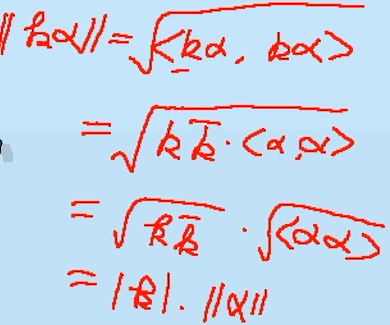 ‖kα‖ = √<kα, kα>
= √k k̄ · <α, α>
= √k k̄ · √<α α>
= |k| · ‖α‖